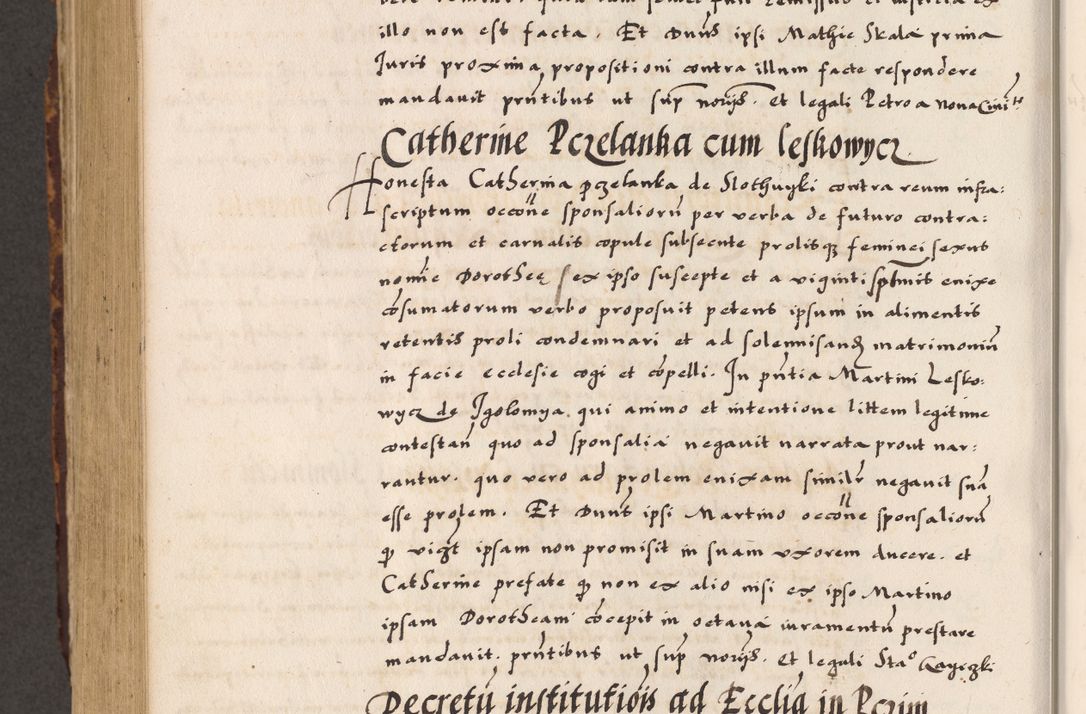 illo non est facta. Et Dnus ipsi Mathie Skala prima
Juris proxima propositioni contra illum facte respondere
mandavit pñtibus ut sup noĩs. et legali Petro a Nova Civit
Catherine Pczelanka cum Leskowycz
Honesta Catherina pczelanka de Slothuyki contra reum infra:
scriptum occõne sponsaliorũ per verba de futuro contra:
ctorum et carnalis copule subsecute prolisq feminei sexus
nomie Dorothee ex ipso suscepte et a viginti sptimis enixe
cõsumatorum verbo proposuit petens ipsum in alimentis
retentis proli condemnari et ad solemnisand matrimoniũ
in facie ecclesie cogi et cõpelli. In pñtia Martini Lesko:
wycz de Jgolomya qui animo et intentione littem legitime
contestañ quo ad sponsalia negavit narrata prout nar:
rantur. quo vero ad prolem enixam similr negavit suã
esse prolem. Et Dnus ipsi Martino occõne sponsaliorũ
q vigt ipsam non promisit in suam uxorem ducere. et
Catherine prefate q non ex alio nisi ex ipso Martino
ipsam Dorotheam cõcepit in octava iuramentũ prestare
mandavit. pñtibus ut sup noĩs. et legali Sta° Gayczki
Decretũ institutiõis ad Eccliã in Pczim